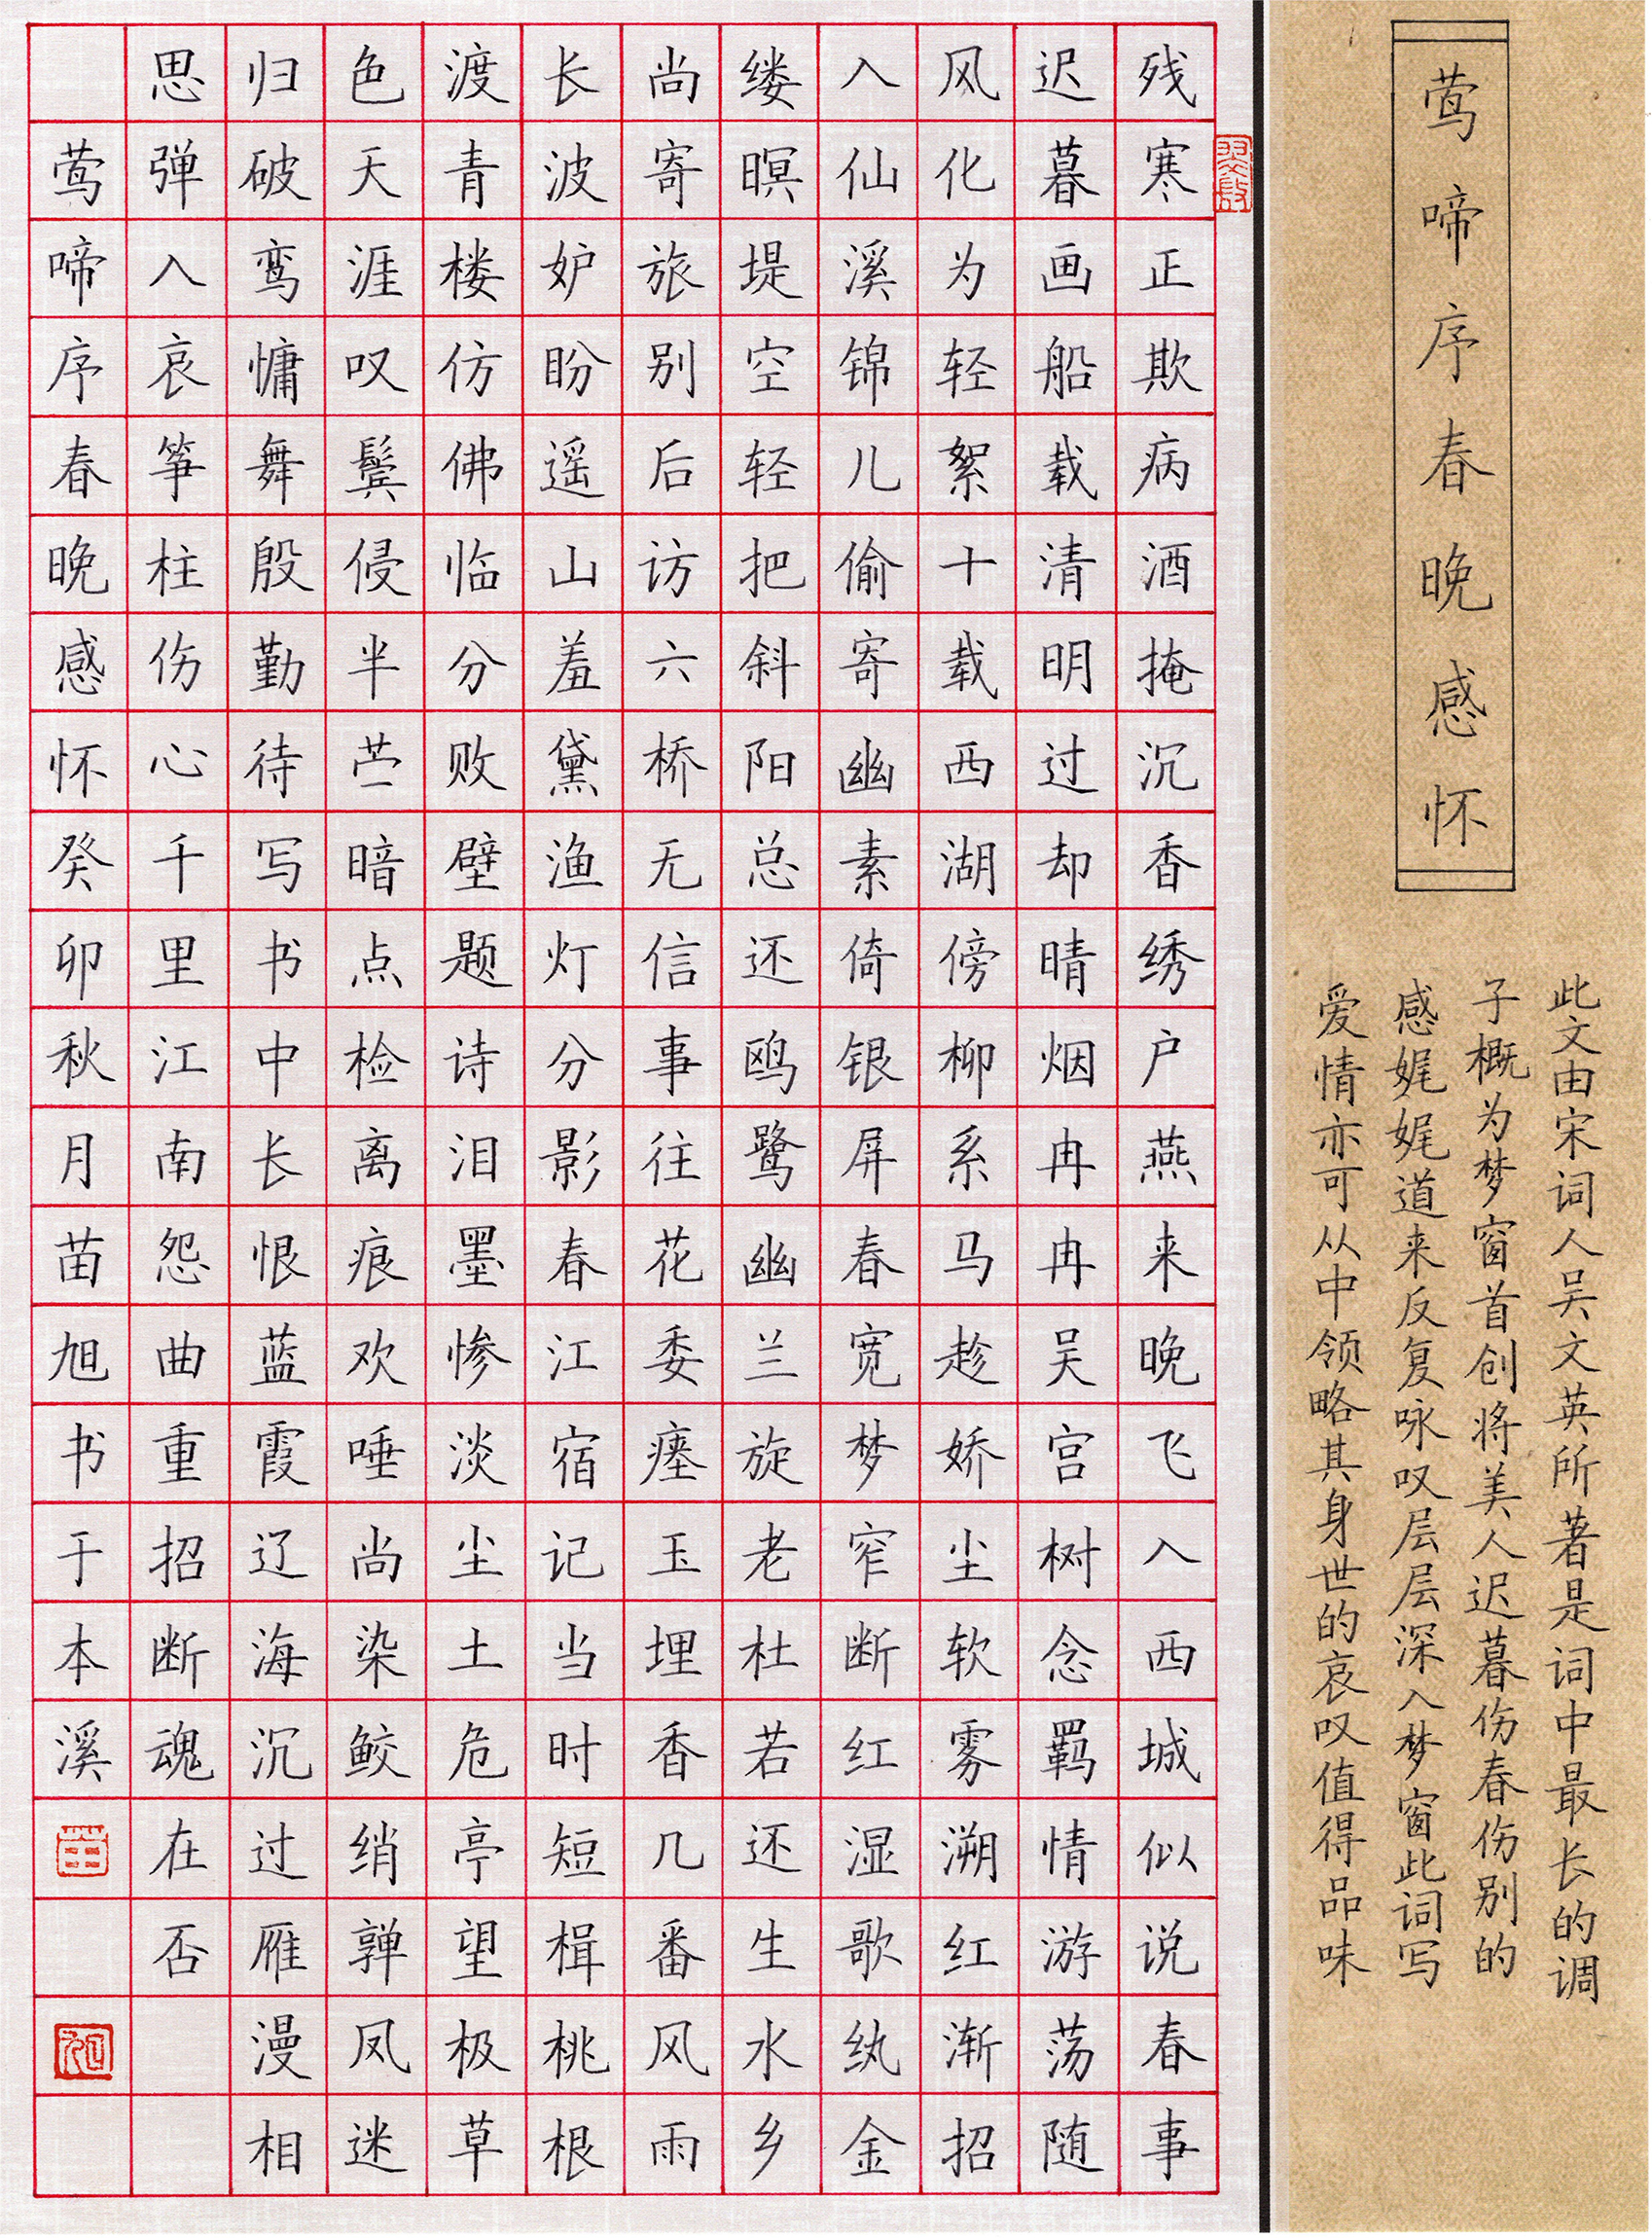 莺啼序春晚感怀
此文由宋词人吴文英所著是词中最长的调
子概为梦窗首创将美人迟暮伤春伤别的
感娓娓道来反复咏叹层层深入梦窗此词写
爱情亦可从中领略其身世的哀叹值得品味
残寒正欺病酒掩沉香绣户燕来晚飞入西城似说春事
迟暮画船载清明过却晴烟冉冉吴宫树念羁情游荡随
风化为轻絮十载西湖傍柳系马趁娇尘软雾溯红渐招
入仙溪锦儿偷寄幽素倚银屏春宽梦窄断红湿歌纨金
缕暝堤空轻把斜阳总还鸥鹭幽兰旋老杜若还生水乡
尚寄旅别后访六桥无信事往花委瘗玉埋香几番风雨
长波妒盼遥山羞黛渔灯分影春江宿记当时短楫桃根
渡青楼仿佛临分败壁题诗泪墨惨淡尘土危亭望极草
色天涯叹鬓侵半苎暗点检离痕欢唾尚染鲛绡亸凤迷
归破鸾慵舞殷勤待写书中长恨蓝霞辽海沉过雁漫相
思弹入哀筝柱伤心千里江南怨曲重招断魂在否
莺啼序春晚感怀癸卯秋月苗旭书于本溪
苗
旭